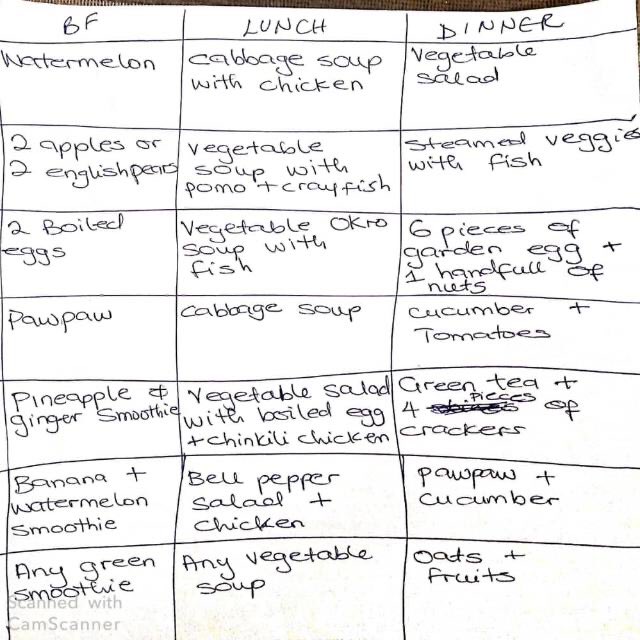 BF LUNCH DINNER
Watermelon
cabbage soup
with chicken
Vegetable
salad
2 apples or
2 englishpears
vegetable
soup with
pomo + crayfish
Steamed veggies
with fish
2 Boiled
eggs
Vegetable Okro
soup with
fish
6 pieces of
garden egg +
1 handfull of
nuts
Pawpaw
cabbage soup
cucumber +
Tomatoes
Pineapple &
ginger Smoothie
Vegetable Salad
with boiled egg
+ chinkili chicken
Green tea +
4 pieces of
crackers
Banana +
watermelon
smoothie
Bell pepper
salad +
chicken
pawpaw +
cucumber
Any green
smoothie
Any vegetable
soup
Oats +
fruits
Scanned with
CamScanner